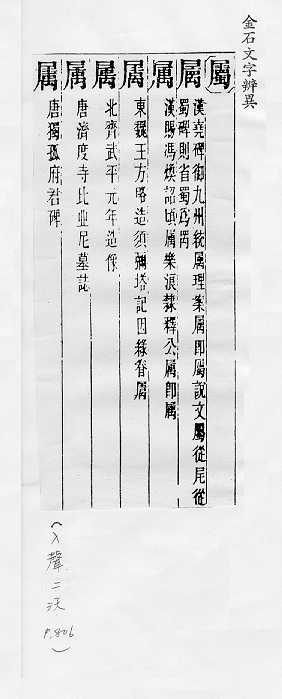 金石文字辨異
屬
屬 漢堯碑御九州統屬理案屬即屬說文屬從尾從
蜀碑則省蜀為禺
属 漢賜馮煥詔頃属樂浪隸釋公属即屬
属 東魏王方略造須彌塔記因緣眷属
属 北齊武平元年造像
属 唐濟度寺比丘尼墓誌
属 唐獨孤府君碑
(入聲二沃
P.806)